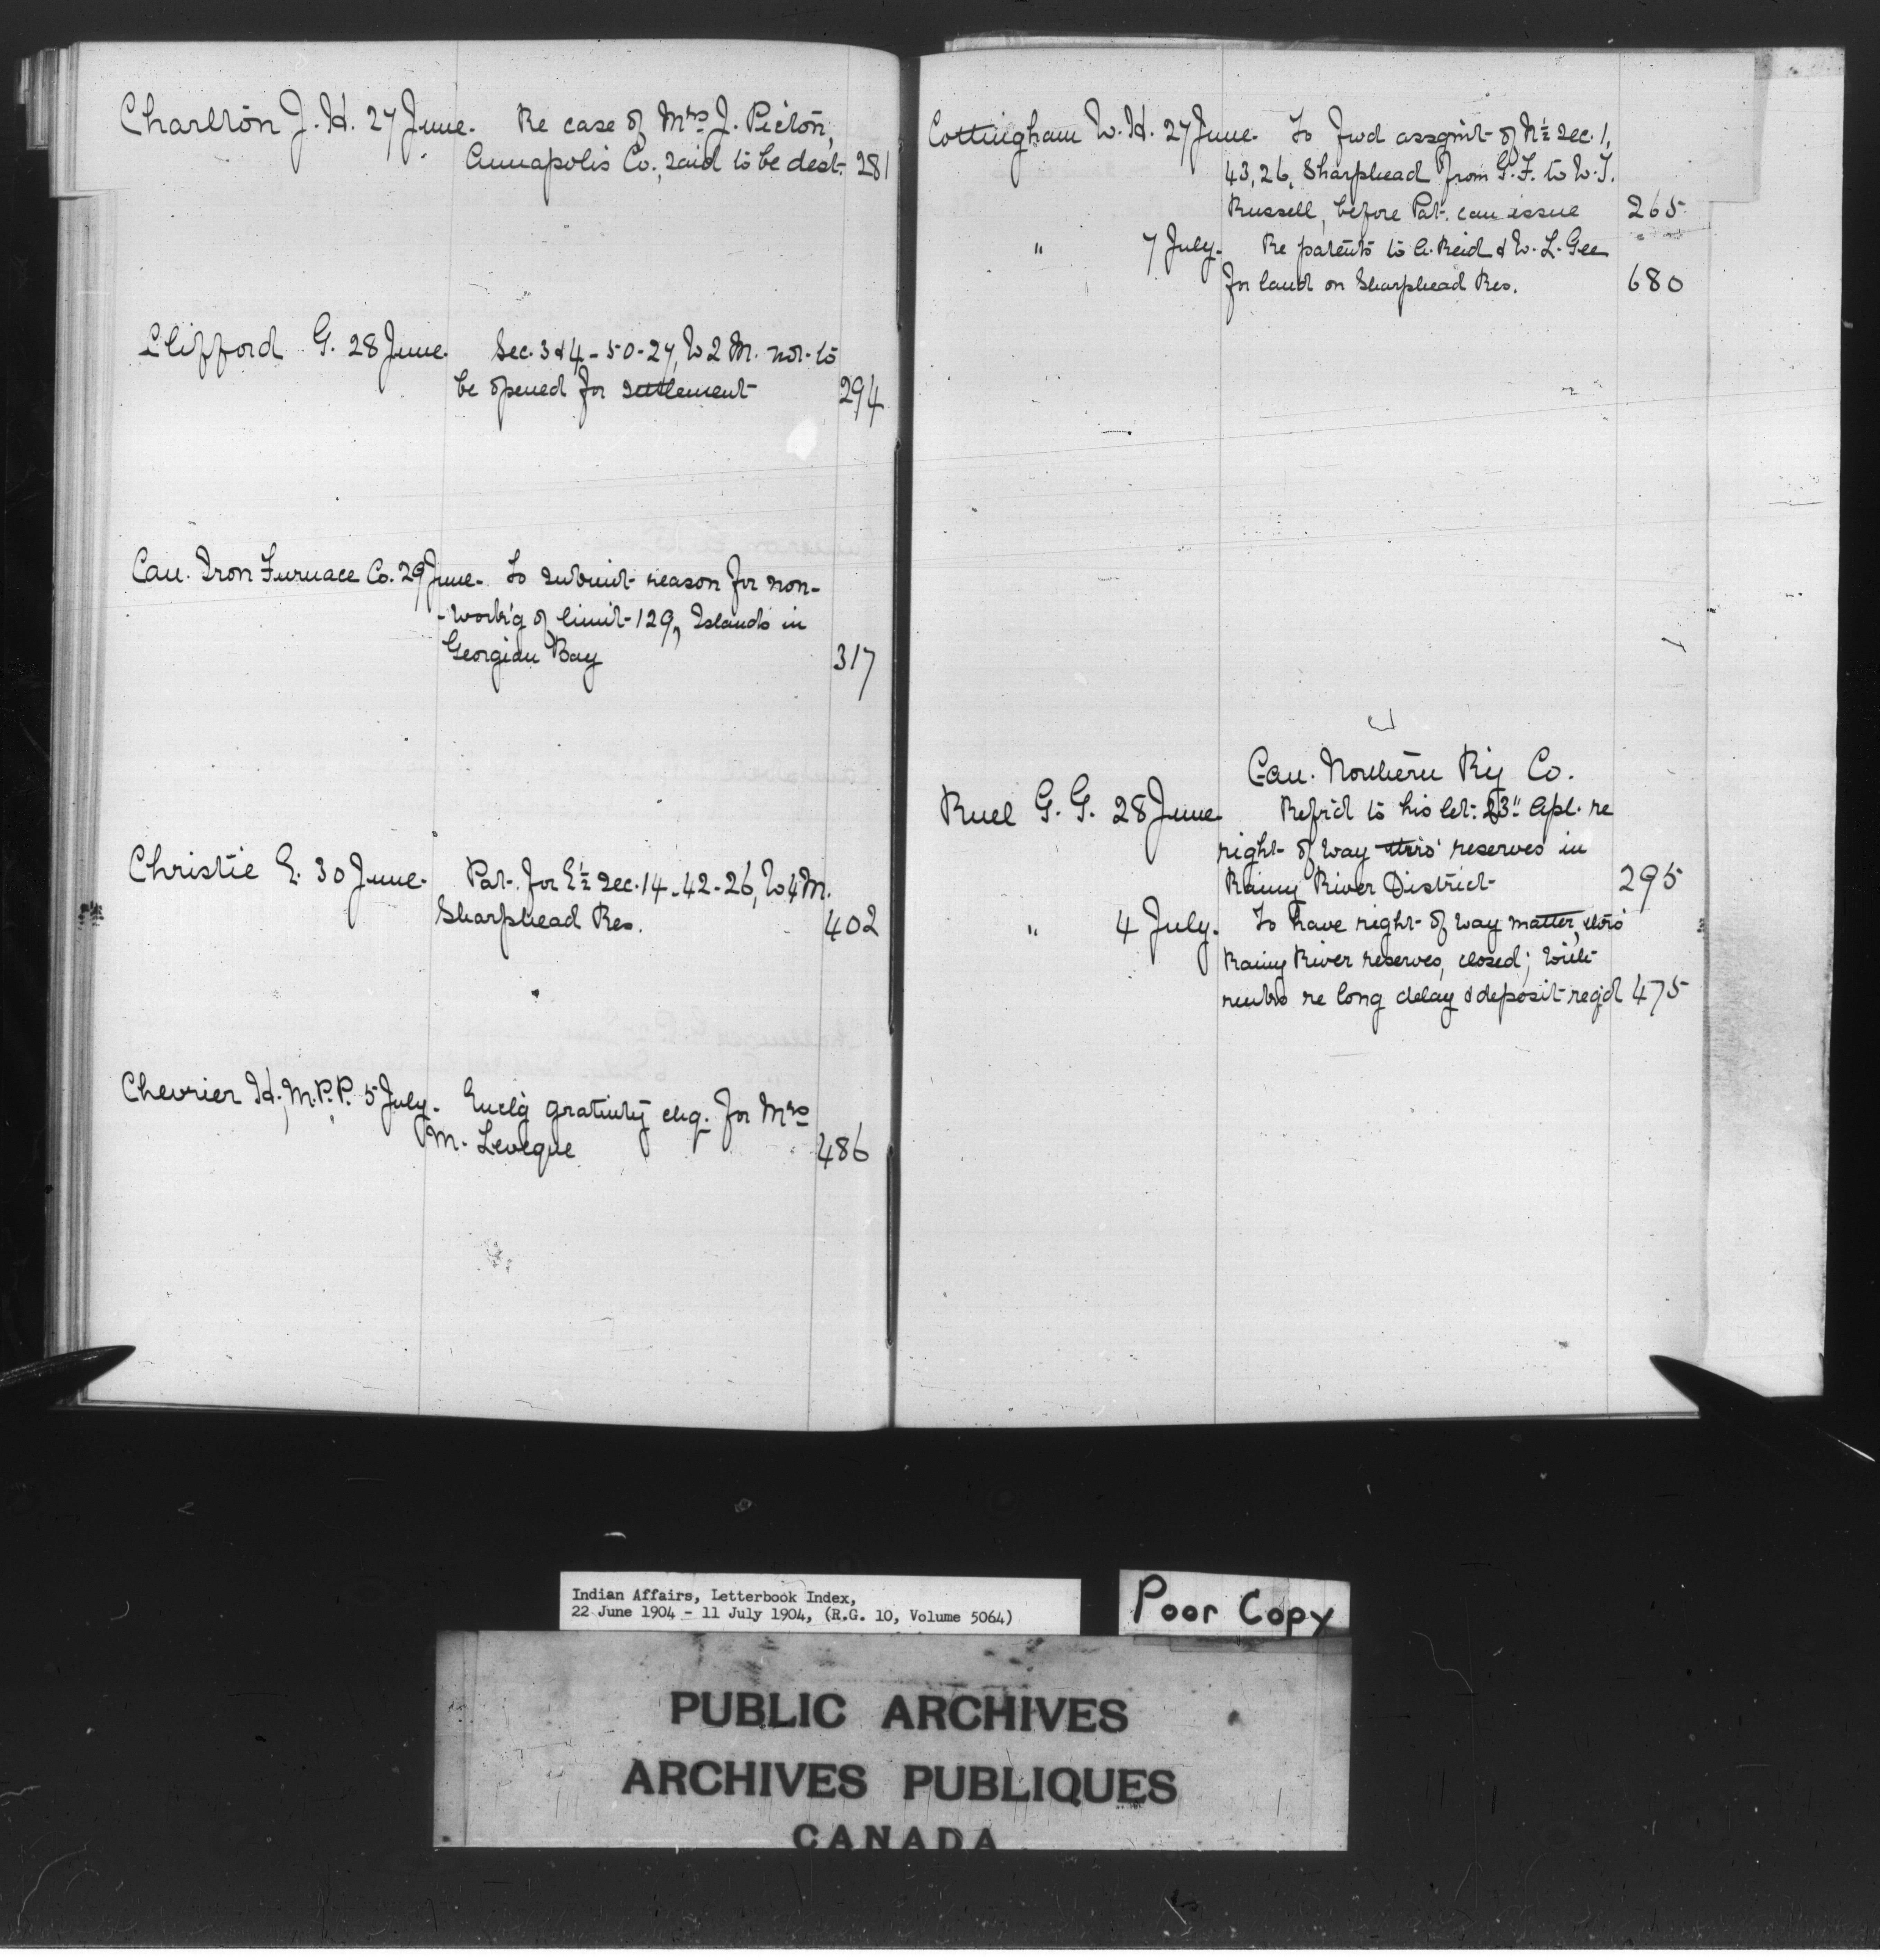 Charlton J. H. 27 June. Re case of Mrs J. Picton,
Annapolis Co., said to be dest. 281
Clifford G. 28 June. Sec. 3 & 4 - 50 - 27, W 2 M. not to
be opened for settlement 294
Can. Iron Furnace Co. 29 June. To submit reason for non-
-work'g of limit 129, Islands in
Georgian Bay 317
Christie E. 30 June. Pat. for E ½ Sec. 14 - 42 - 26, W 4 M.
Sharphead Res. 402
Chevrier H., M.P.P. 5 July. Encl'g gratuity chq. for Mrs
M. Leveque 486
Cottingham W. H. 27 June. To fwd assgmt of N ½ Sec. 1,
43, 26, Sharphead from G. F. to W. J.
Russell, before Pat. can issue 265
" 7 July. Re patents to A. Reid & W. L. Gee
for land on Sharphead Res. 680
Can. Northern Ry Co.
Ruel G. G. 28 June Refr'd to his let: 23" Apl. re
right of way thro' reserves in
Rainy River District 295
" 4 July. To have right of way matter, thro'
Rainy River reserves, closed; with
re long delay & deposit req'd 475
Indian Affairs, Letterbook Index,
22 June 1904 - 11 July 1904, (R.G. 10, Volume 5064)
Poor Copy
PUBLIC ARCHIVES
ARCHIVES PUBLIQUES
CANADA